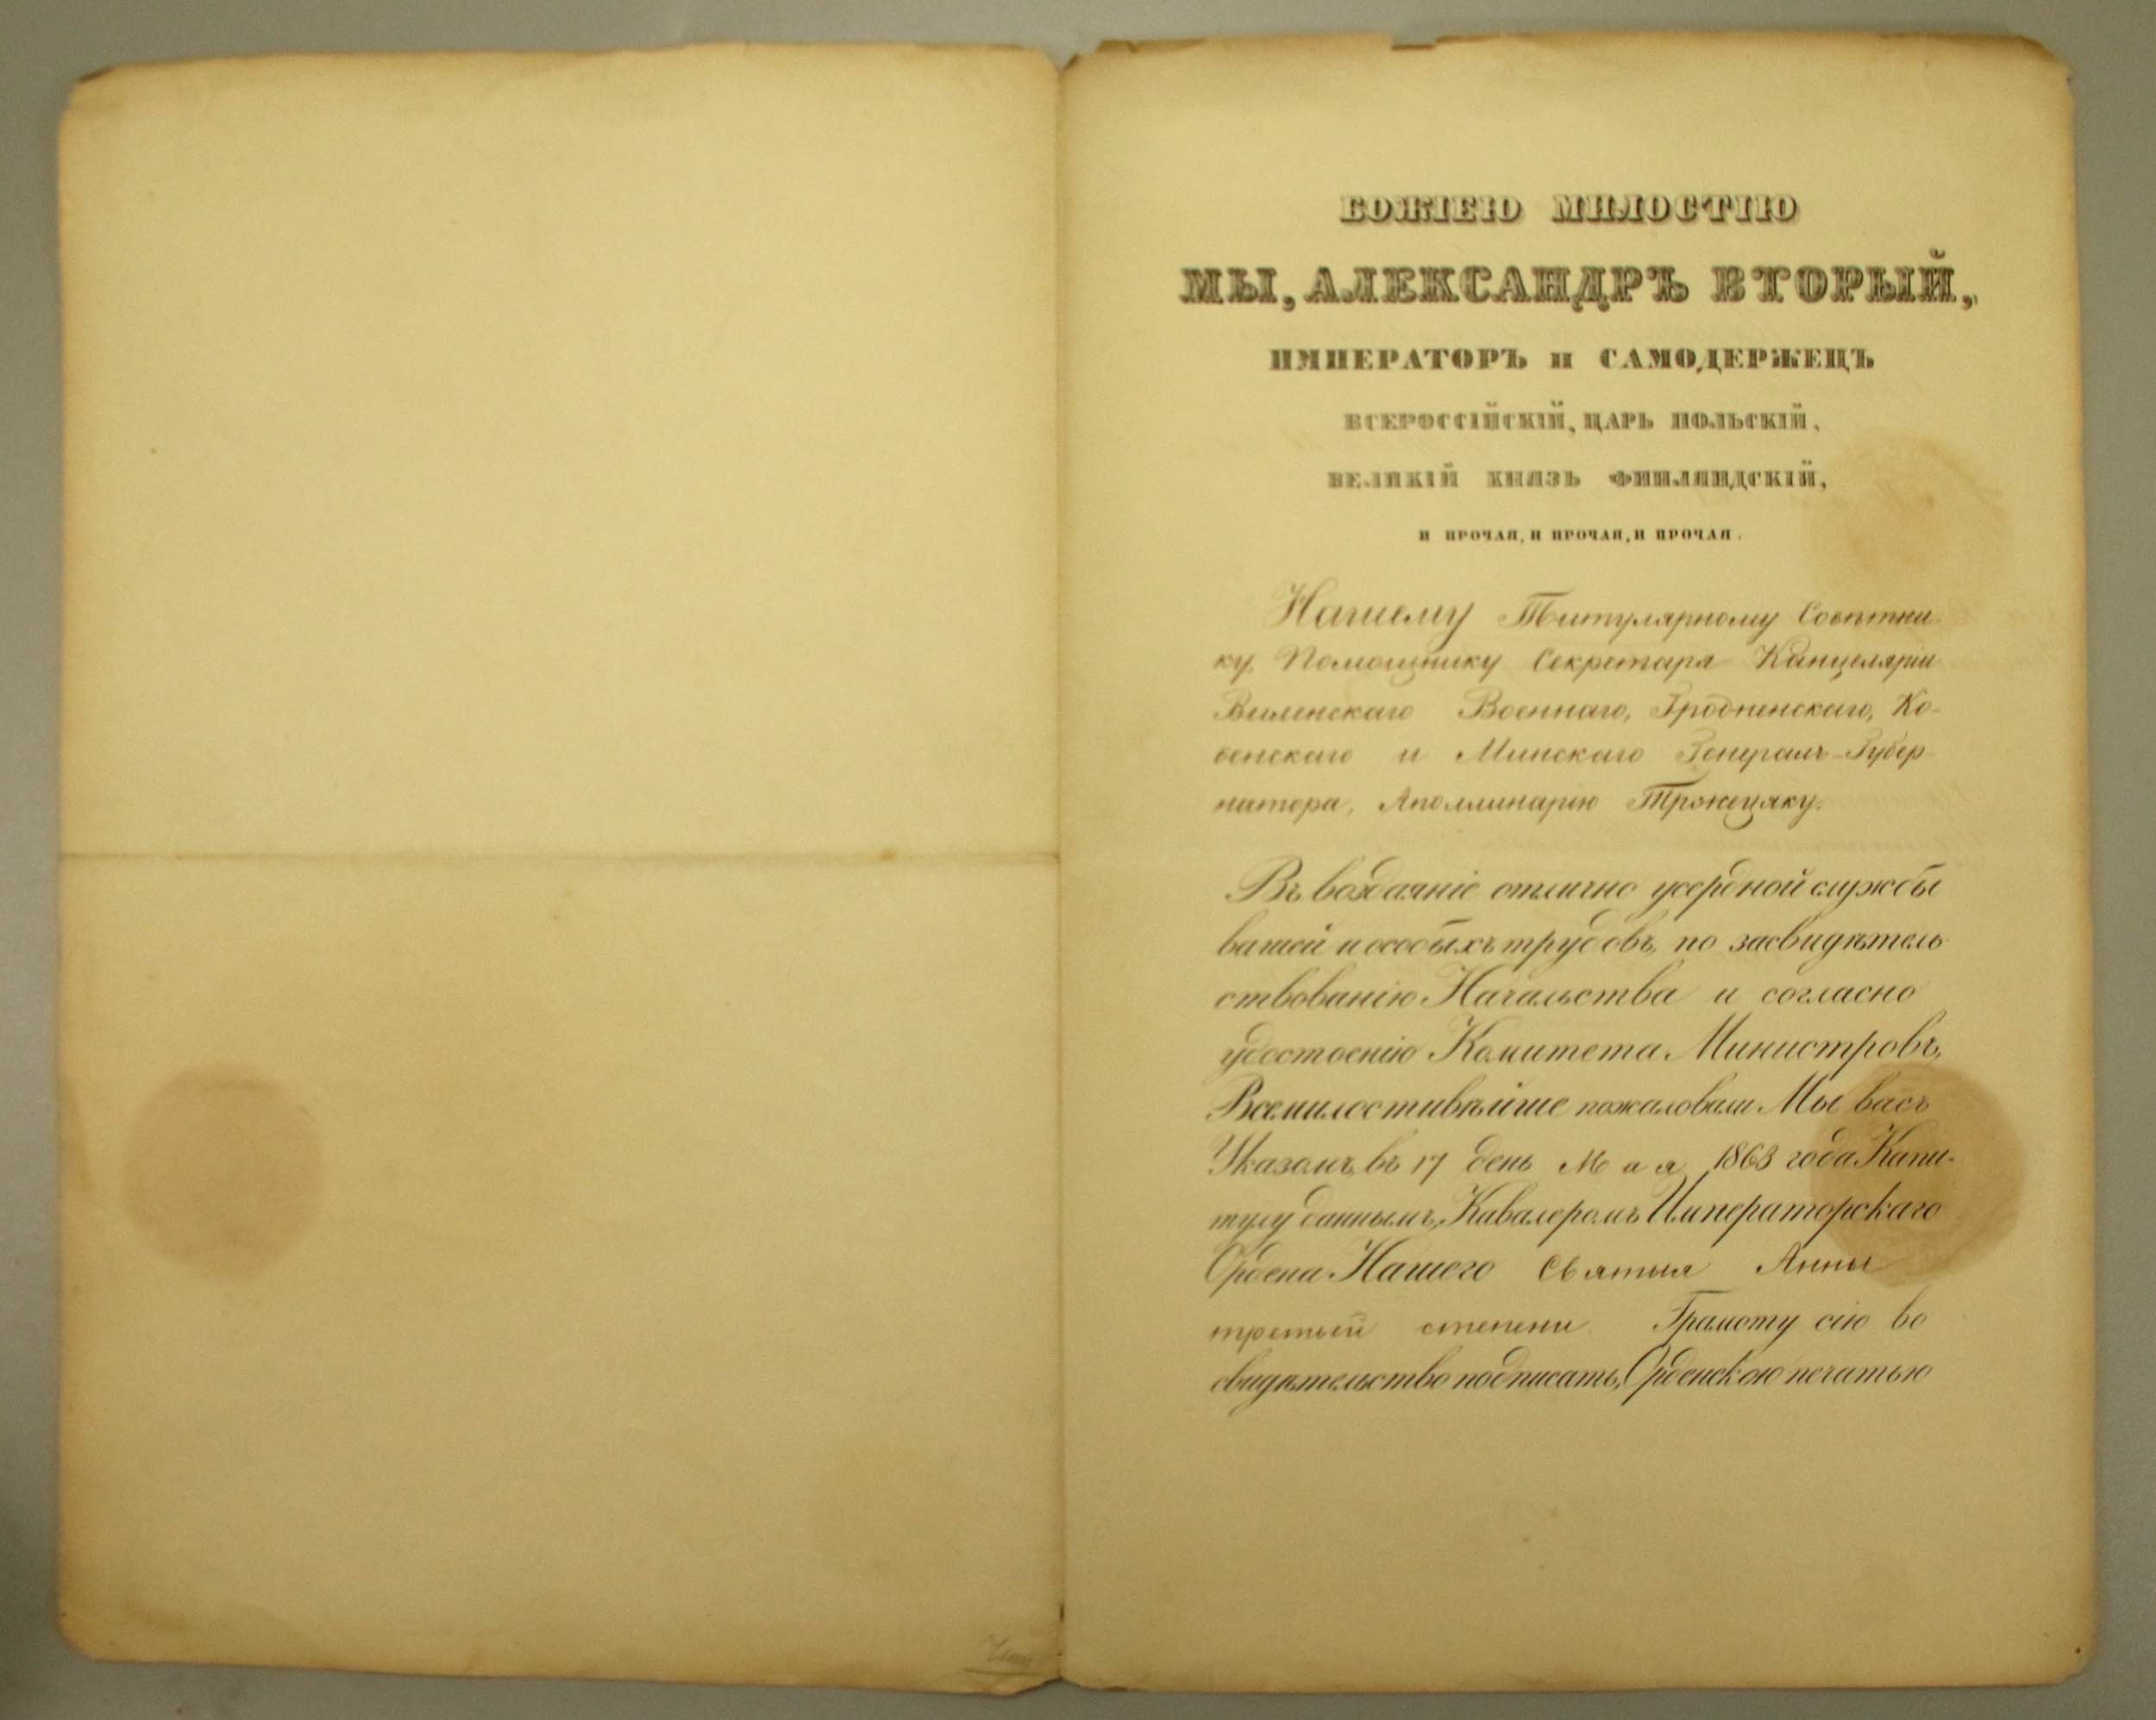 БОЖІЕЮ МИЛОСТІЮ
МЫ, АЛЕКСАНДРЪ ВТОРЫЙ,
ИМПЕРАТОРЪ и САМОДЕРЖЕЦЪ
ВСЕРОССІЙСКІЙ, ЦАРЬ ПОЛЬСКІЙ,
ВЕЛИКІЙ КНЯЗЬ ФИНЛЯНДСКІЙ,
И ПРОЧАЯ, И ПРОЧАЯ, И ПРОЧАЯ.
Нашему Титулярному Совѣтни-
ку, Помощнику Секретаря Канцеляріи
Виленскаго Военнаго, Гродненскаго, Ко-
венскаго и Минскаго Генералъ-Губер-
натора, Аполлинарію Тржецяку.
Въ воздаяніе отлично усердной службы
вашей и особыхъ трудовъ, по засвидѣтель-
ствованію Начальства и согласно
удостоенію Комитета Министровъ,
Всемилостивѣйше пожаловали Мы васъ
Указомъ, въ 17 день Мая 1863 года Капи-
тулу даннымъ, Кавалеромъ Императорскаго
Ордена Нашего Святыя Анны
третьей степени Грамоту сію во
свидѣтельство подписать, Орденскою печатью